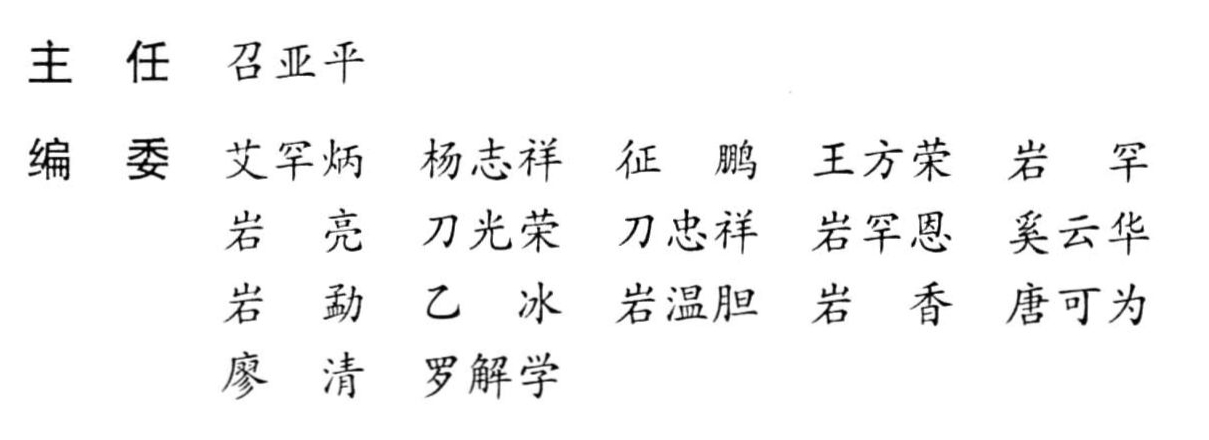 主　任　召亚平
编　委　艾罕炳　杨志祥　征　鹏　王方荣　岩　罕
岩　亮　刀光荣　刀忠祥　岩罕恩　奚云华
岩　勐　乙　冰　岩温胆　岩　香　唐可为
廖　清　罗解学